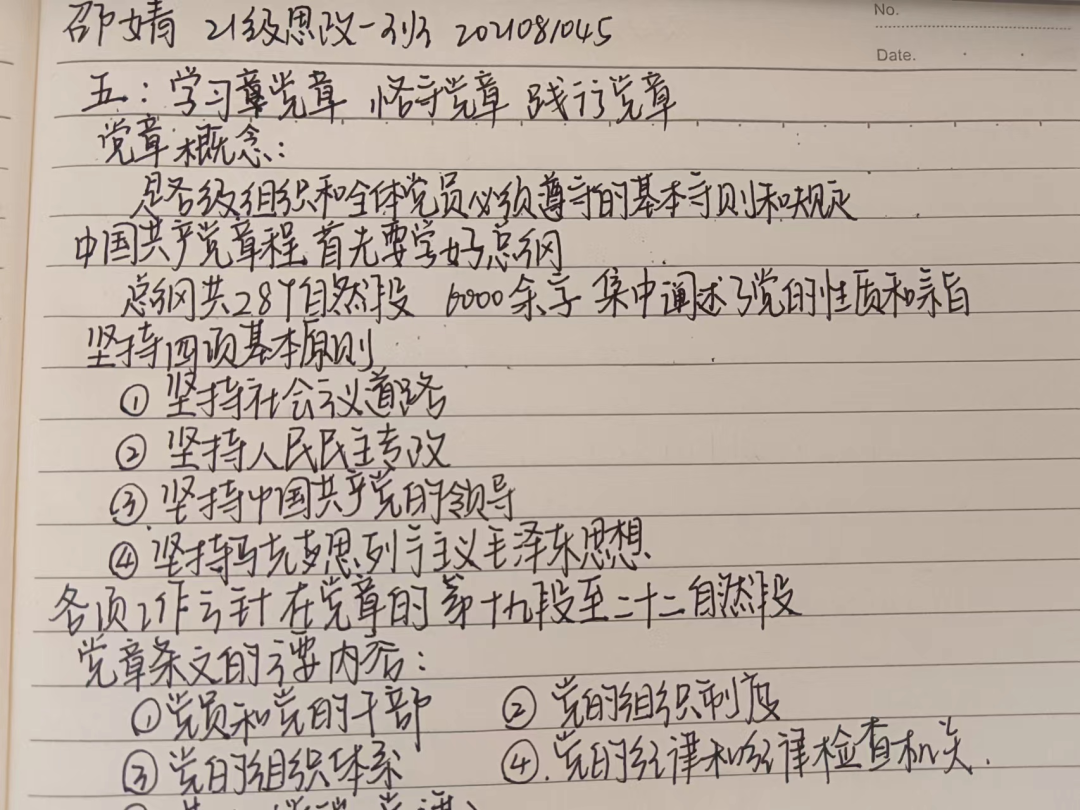 No.
邵婧 21级思政一班 2021081045
Date.
五：学习党章 恪守党章 践行党章
党章概念：
是各级组织和全体党员必须遵守的基本守则和规定
中国共产党章程，首先要学好总纲
总纲共28个自然段 6000余字 集中阐述了党的性质和宗旨
坚持四项基本原则
① 坚持社会主义道路
② 坚持人民民主专政
③ 坚持中国共产党的领导
④ 坚持马克思列宁主义毛泽东思想
各项工作方针在党章的第十九段至二十二自然段
党章条文的主要内容：
①党员和党的干部 ② 党的组织制度
③ 党的组织体系 ④.党的纪律和纪律检查机关.